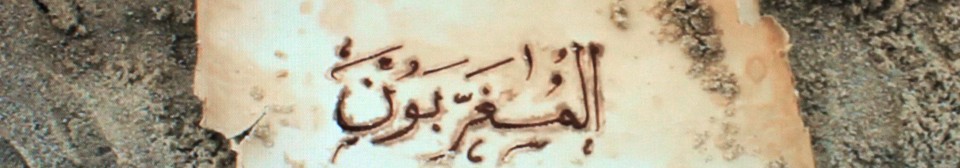 المُغَرِّبُونَ